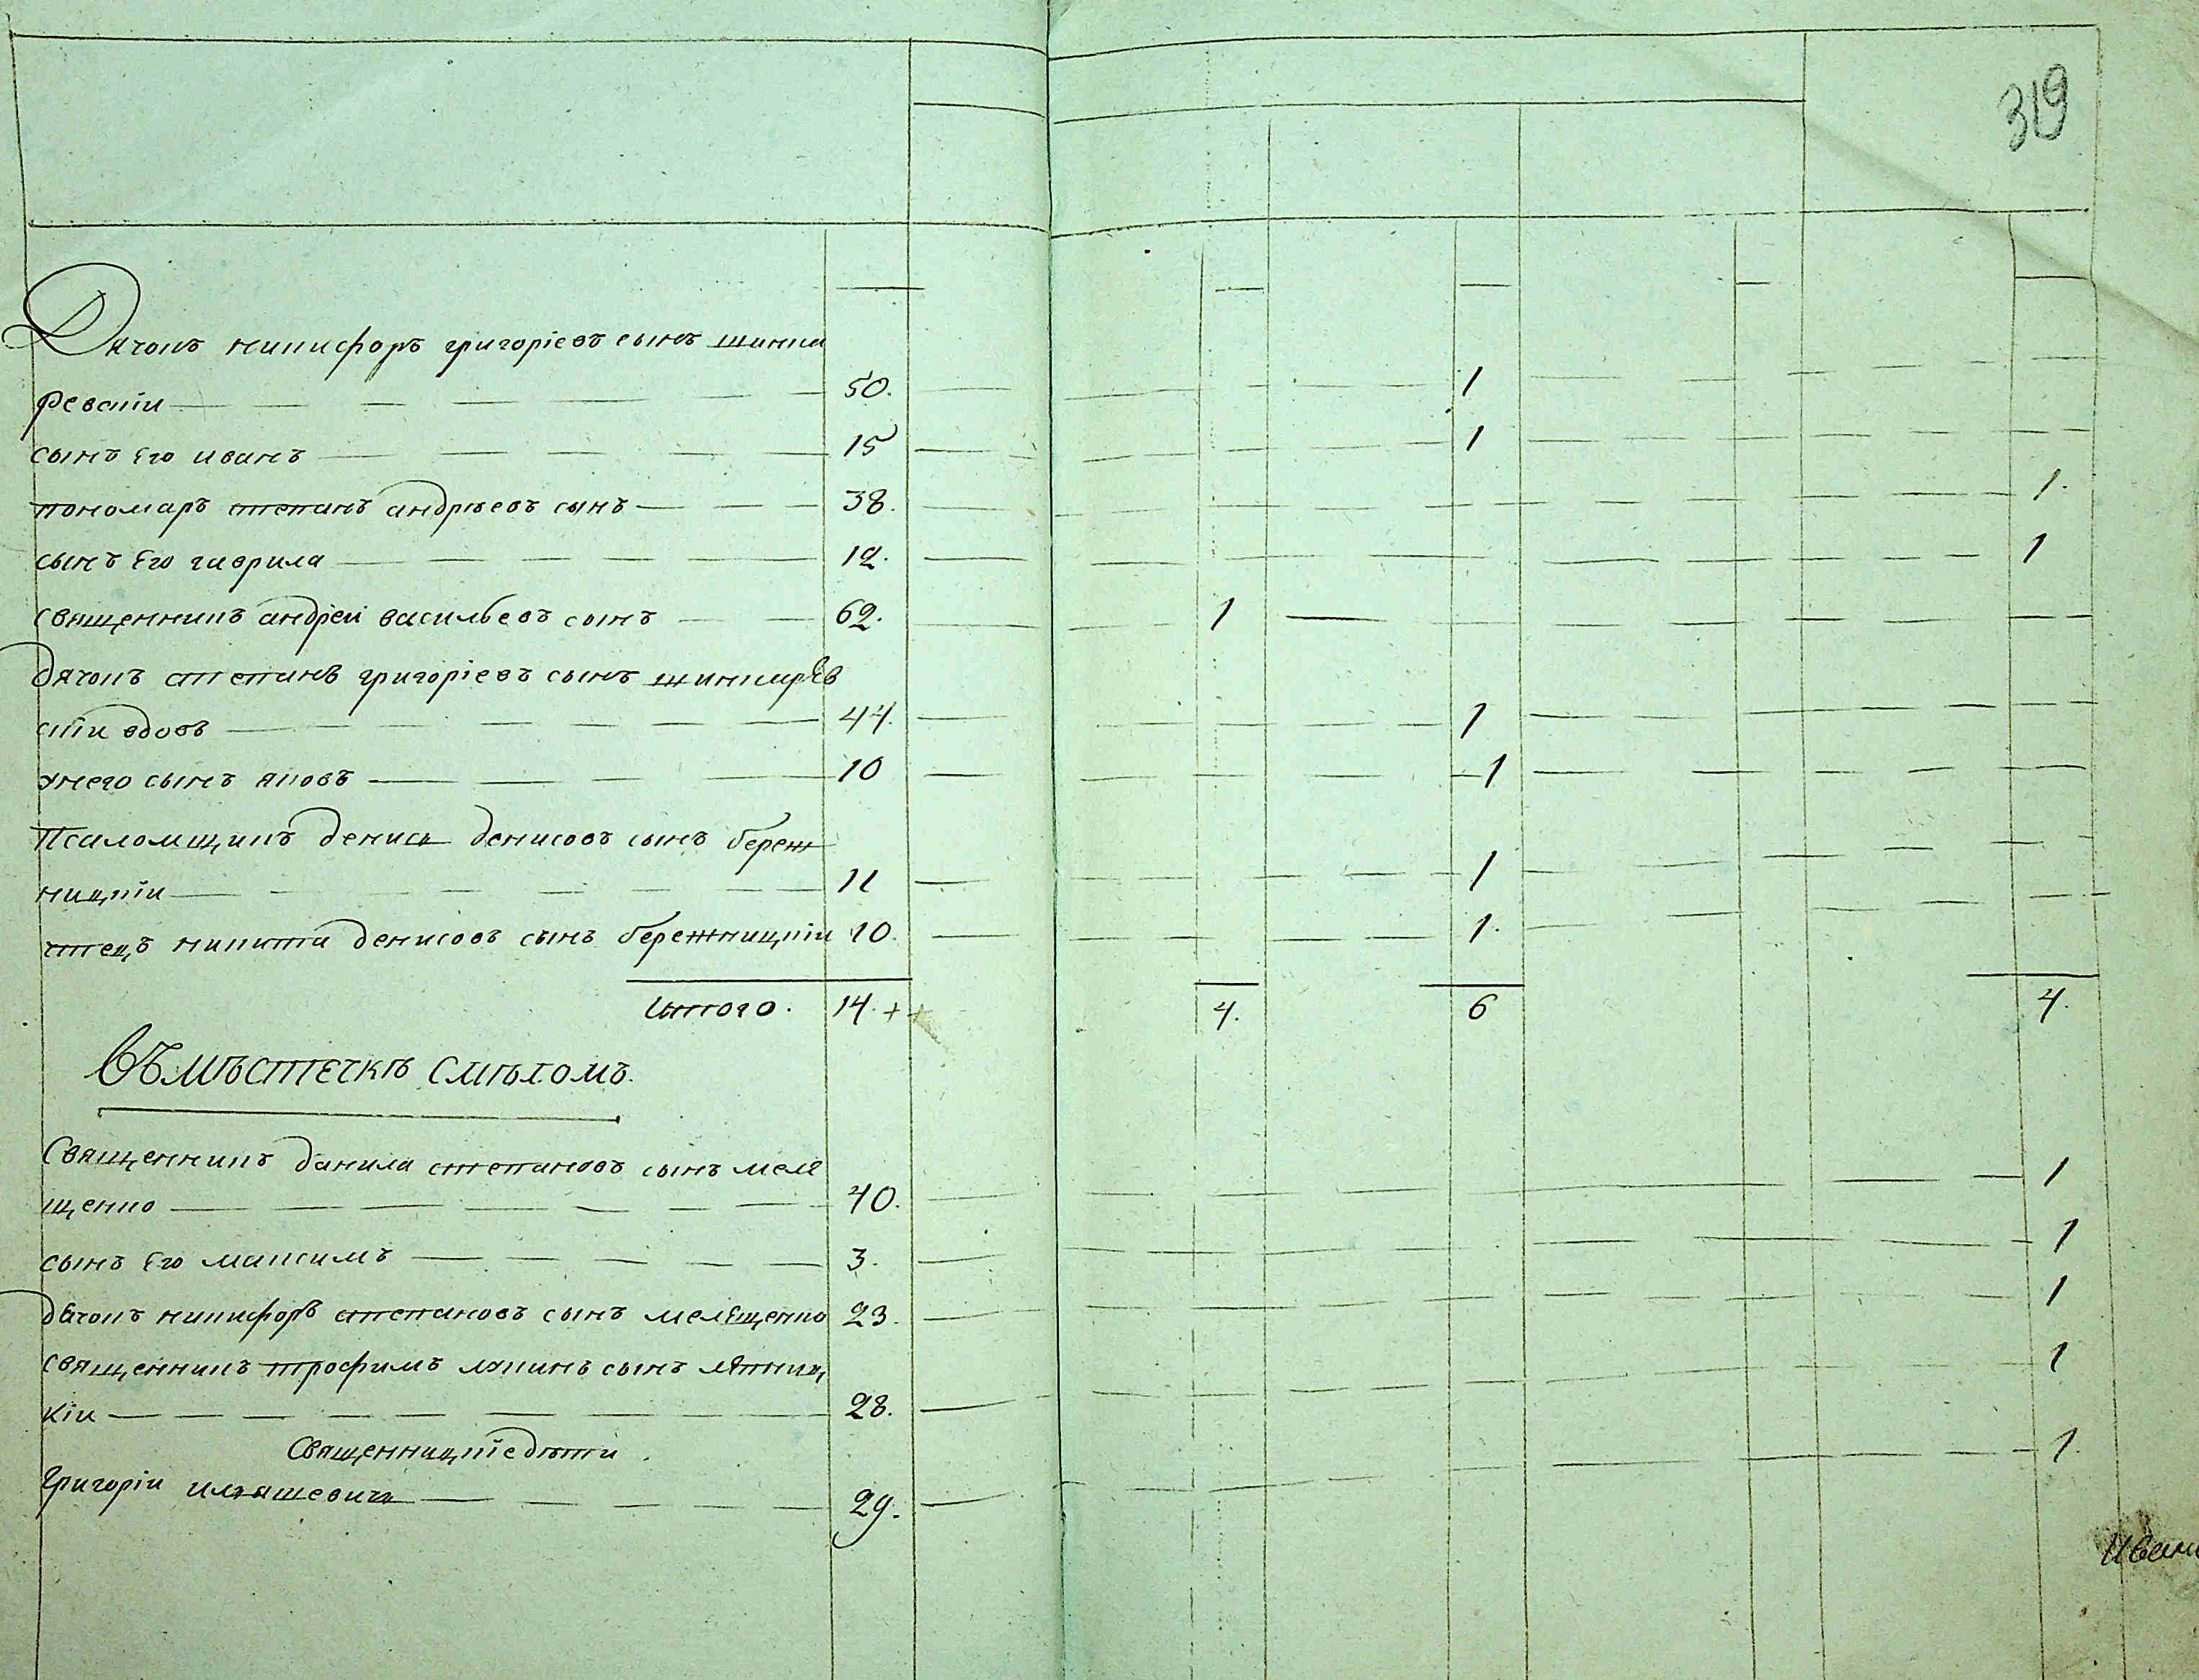 319
Дячокъ никифоръ григоріевъ сынъ шинка
ревскіи 50. 1
сынъ Его иванъ 15 1
пономаръ степанъ андрѣевъ сынъ 38. 1.
сынъ Его гаврила 12. 1
священникъ андреи васильевъ сынъ 62. 1
дячокъ степанъ григоріевъ сынъ шинкарев
скіи вдовъ 44. 1
унего сынъ яковъ 10 1
Псаломщикъ денисъ денисовъ сынъ береж
ницкіи 11 1
чтецъ никита денисовъ сынъ бережницкіи 10. 1.
Итого. 14. + + 4. 6 4.
Въ мѣстечкѣ смѣломъ.
Священникъ данила степановъ сынъ меле
щенко 40. 1
сынъ Его максимъ 3. 1
дячокъ никифоръ степановъ сынъ мелещенко 23. 1
священникъ трофимъ лукинъ сынъ
кіи 28. 1
Священницкіе дѣти.
Григоріи иляшевичъ 29. 1.